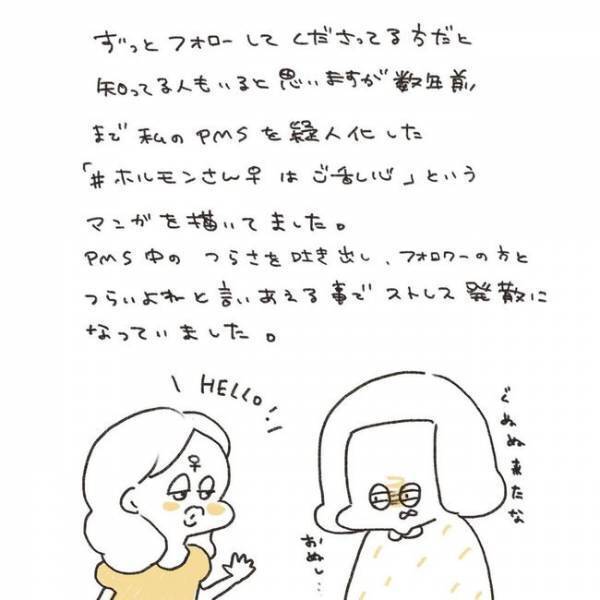 ずっとフォローしてくださってる方だと
知ってる人もいると思いますが数年前
まで私のPMSを擬人化した
「#ホルモンさん♀はご乱心」という
マンガを描いてました。
PMS中のつらさを吐き出し、フォロワーの方と
つらいよねと言いあえる事でストレス発散に
なっていました。
\ HELLO! /
♀
ぐぬぬ来たな
おぬし…